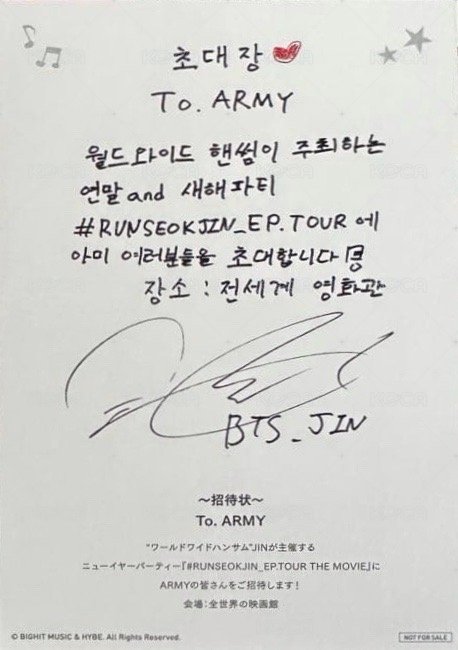 초대장
To. ARMY
월드와이드 핸썸이 주최하는
연말and 새해파티
#RUNSEOKJIN_EP.TOUR 에
아미 여러분들을 초대합니다
장소 : 전세계 영화관
BTS_JIN
～招待状～
To. ARMY
"ワールドワイドハンサム"JINが主催する
ニューイヤーパーティー『#RUNSEOKJIN_EP.TOUR THE MOVIE』に
ARMYの皆さんをご招待します！
会場：全世界の映画館
© BIGHIT MUSIC & HYBE. All Rights Reserved.
NOT FOR SALE